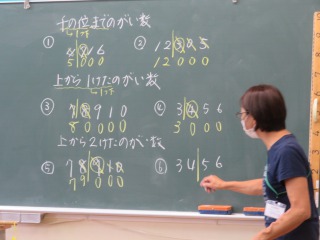 千の位までのがい数
① 4816 ② 12345
5000 12000
上から1けたのがい数
③ 78910 ④ 3456
80000 3000
上から2けたのがい数
⑤ 78910 ⑥ 3456
79000